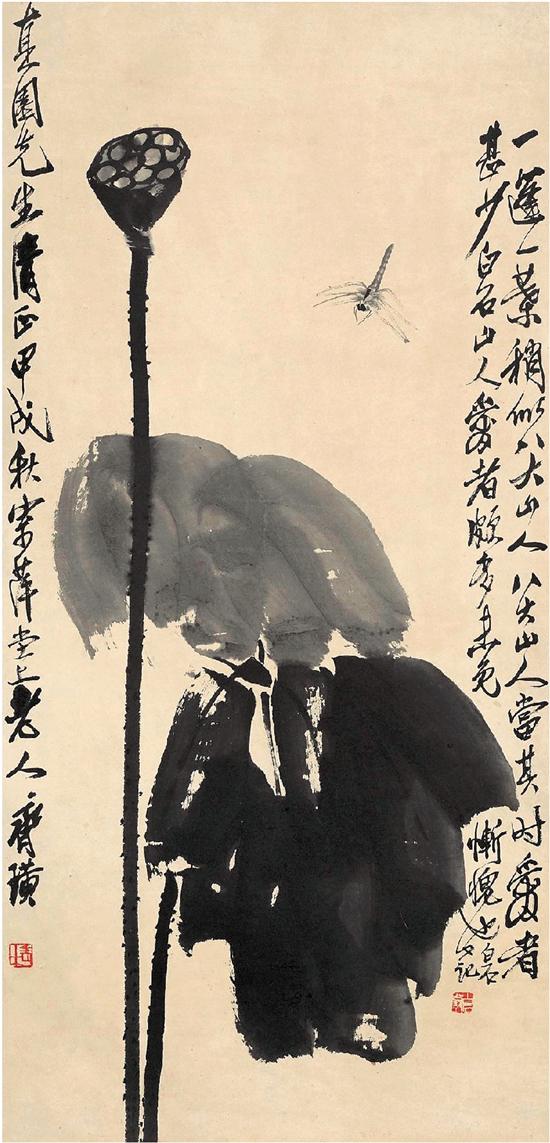 一蓬一葉稍似八大山人八大山人當其时愛者
甚少白石山人愛者頗多未免慚愧也
白石又記
園先生清正甲戌秋寄萍堂上老人齊璜